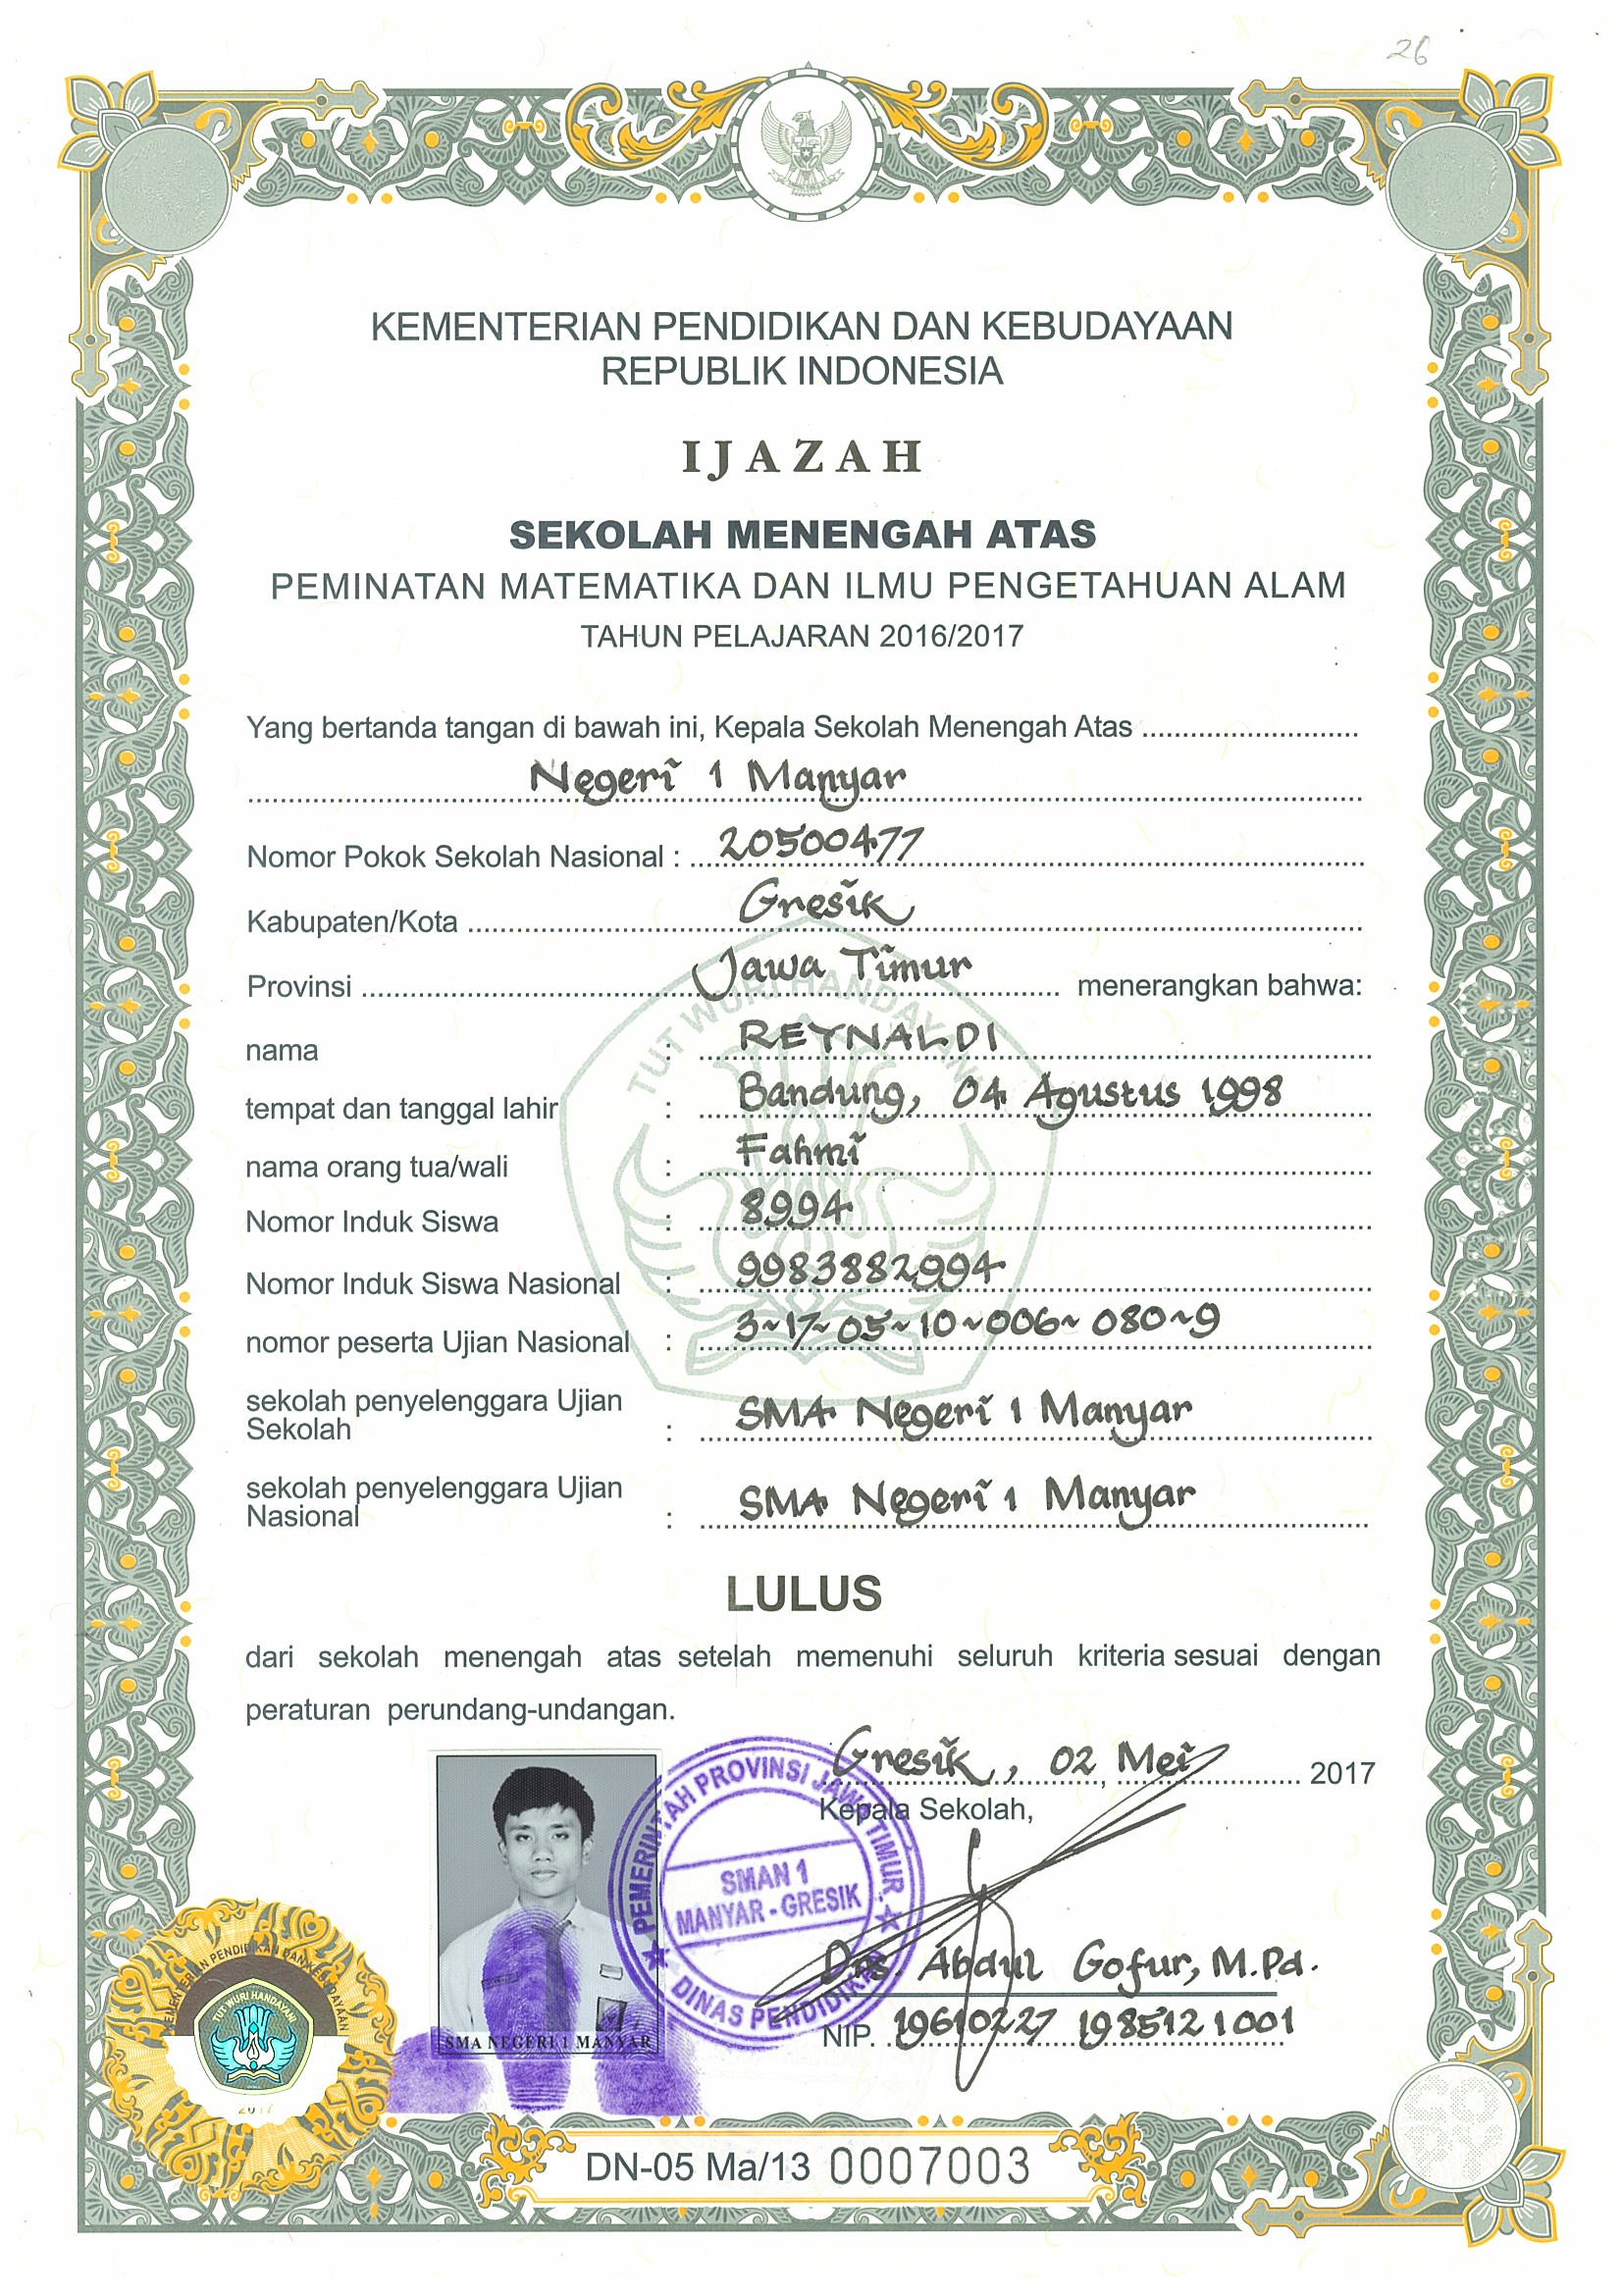 26
KEMENTERIAN PENDIDIKAN DAN KEBUDAYAAN
REPUBLIK INDONESIA
IJAZAH
SEKOLAH MENENGAH ATAS
PEMINATAN MATEMATIKA DAN ILMU PENGETAHUAN ALAM
TAHUN PELAJARAN 2016/2017
Yang bertanda tangan di bawah ini, Kepala Sekolah Menengah Atas
Negeri 1 Manyar
Nomor Pokok Sekolah Nasional : 20500477
Kabupaten/Kota Gresik
Provinsi Jawa Timur menerangkan bahwa:
nama : REYNALDI
tempat dan tanggal lahir : Bandung, 04 Agustus 1998
nama orang tua/wali : Fahmi
Nomor Induk Siswa : 8994
Nomor Induk Siswa Nasional : 9983882994
nomor peserta Ujian Nasional : 3-17-05-10-006-080-9
sekolah penyelenggara Ujian
Sekolah : SMA Negeri 1 Manyar
sekolah penyelenggara Ujian
Nasional : SMA Negeri 1 Manyar
TUT WURI HANDAYANI
LULUS
dari sekolah menengah atas setelah memenuhi seluruh kriteria sesuai dengan
peraturan perundang-undangan.
Gresik, 02 Mei 2017
Kepala Sekolah,
PEMERINTAH PROVINSI JAWA TIMUR
SMAN 1
MANYAR - GRESIK
DINAS PENDIDIKAN
Drs. Abdul Gofur, M.Pd.
NIP. 19610227 198512 1 001
SMA NEGERI 1 MANYAR
KEMENTERIAN PENDIDIKAN DAN KEBUDAYAAN
TUT WURI HANDAYANI
2017
COPY
DN-05 Ma/13 0007003